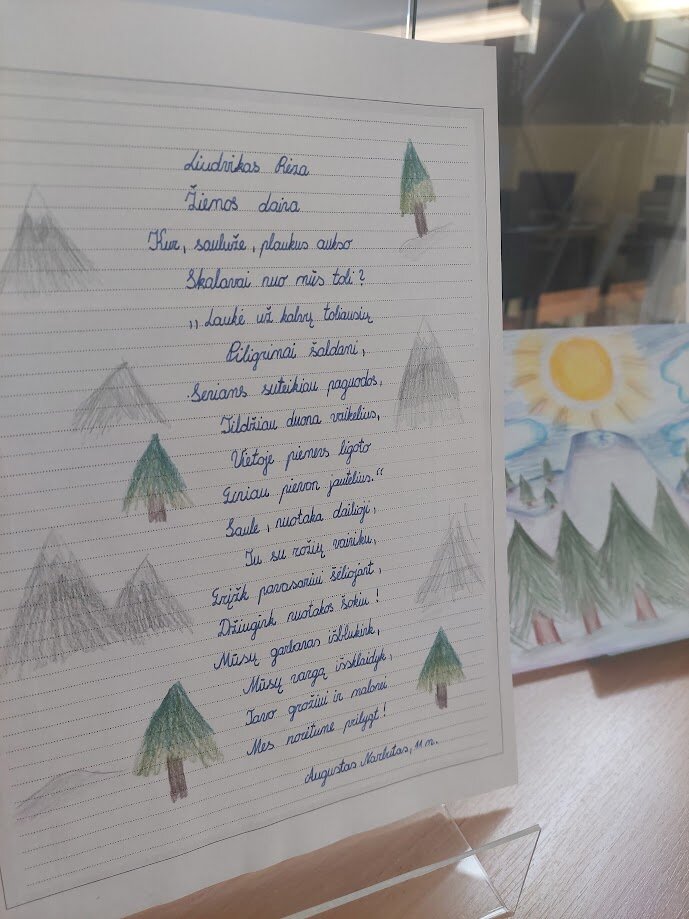 Liudvikas Rėza
Žiemos daina
Kur, saulule, plaukus aukso
Skalavai nuo mūs toli?
„Laukė už kalvų toliausių
Piligrimai šaldami,
Seniams suteikiau paguodos,
Šildžiau duona vaikelius,
Vietoje piemens ligoto
Geniau pievon jautelius."
Saule, nuotaka dailioji,
Tu su rožių vainiku,
Grįžk pavasariui šėliojant,
Džiugink nuotakos šokiu!
Mūsų garbanas išblukink,
Mūsų vargą išsklaidyk,
Tavo grožiui ir malonei
Mes norėtume prilygt!
Augustas Narbutas, 11 m.